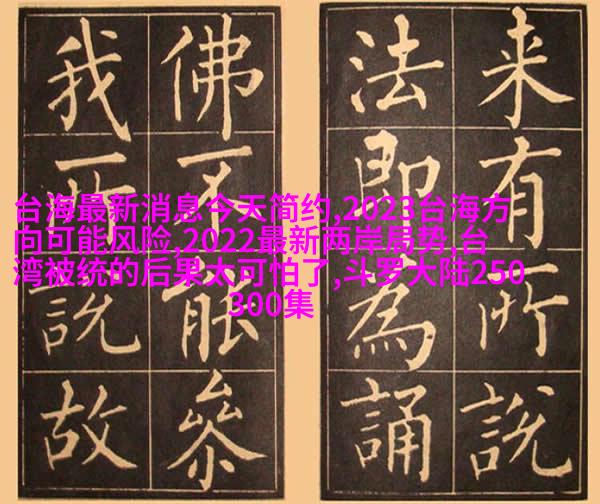 来有所說
法即為誦
佛不能參
我所說故
台海最新消息今天简约,2023台海方
向可能风险,2022最新两岸局势,台
湾被统的后果太可怕了,斗罗大陆250
300集